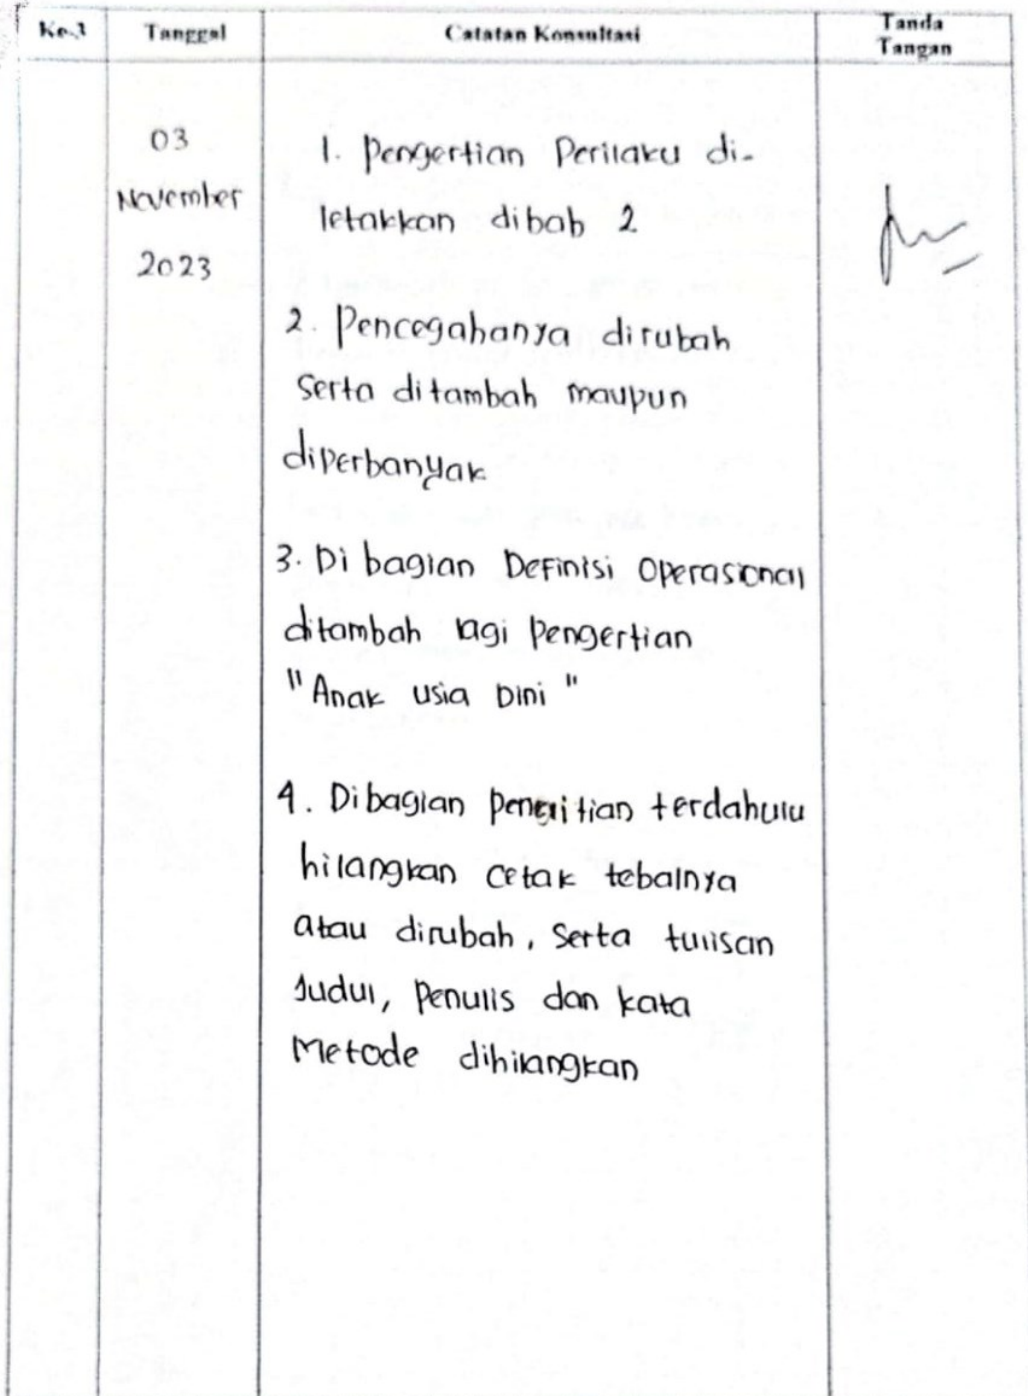 Ke-1 Tanggal Catatan Konsultasi Tanda
Tangan
03
November
2023
1. Pengertian Perilaku di-
letakkan dibab 2
2. Pencegahanya dirubah
serta ditambah maupun
diperbanyak
3. Di bagian Definisi Operasional
ditambah lagi Pengertian
"Anak usia Dini"
4. Dibagian Penelitian terdahulu
hilangkan cetak tebalnya
atau dirubah, serta tulisan
Judul, Penulis dan kata
Metode dihilangkan